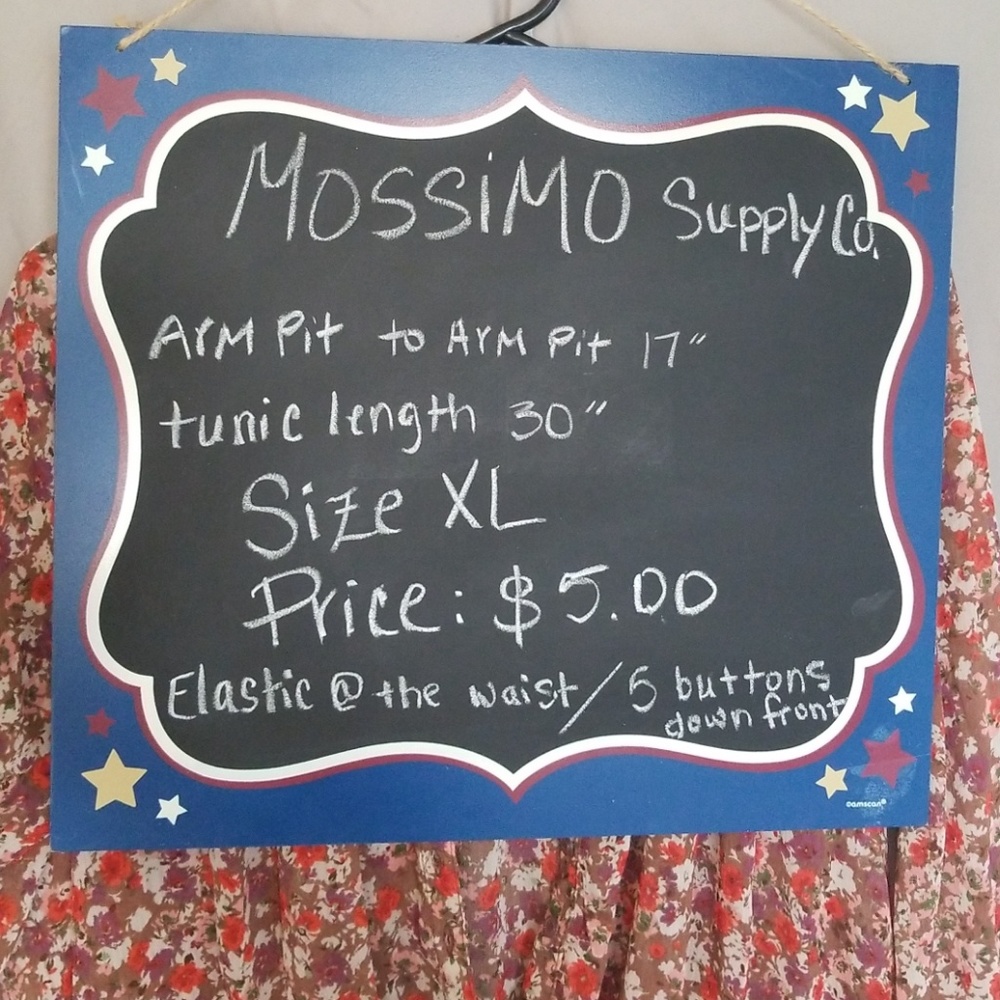 MOSSiMO Supply Co.
Arm Pit to Arm Pit 17"
tunic length 30"
Size XL
Price: $5.00
Elastic @ the waist/5 buttons
down front
©amscan®